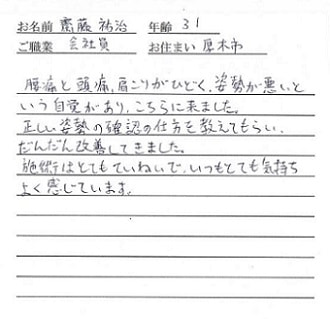 お名前 齋藤 祐治 年齢 31
ご職業 会社員 お住まい 厚木市
腰痛と頭痛、肩こりがひどく、姿勢が悪いと
いう自覚があり、こちらに来ました。
正しい姿勢の確認の仕方を教えてもらい、
だんだん改善してきました。
施術はとてもていねいで、いつもとても気持ち
よく感じています。